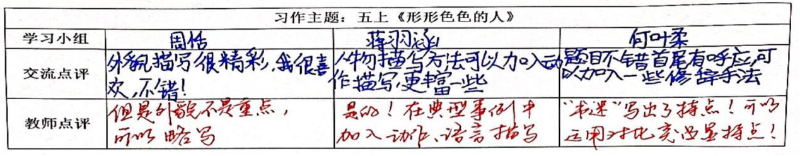 习作主题：五上《形形色色的人》
学习小组 周恬 蒋羽涵 何叶柔
交流点评 外貌描写很精彩，我很喜
欢，不错！
人物描写方法可以加入动
作描写，更丰富一些
题目不错首尾有呼应，可
以加入一些修辞手法
教师点评 但是外貌不是重点，
可以略写
是的！在典型事例中
加入动作、语言描写
“书迷”写出了特点！可以
运用对比突出显特点！